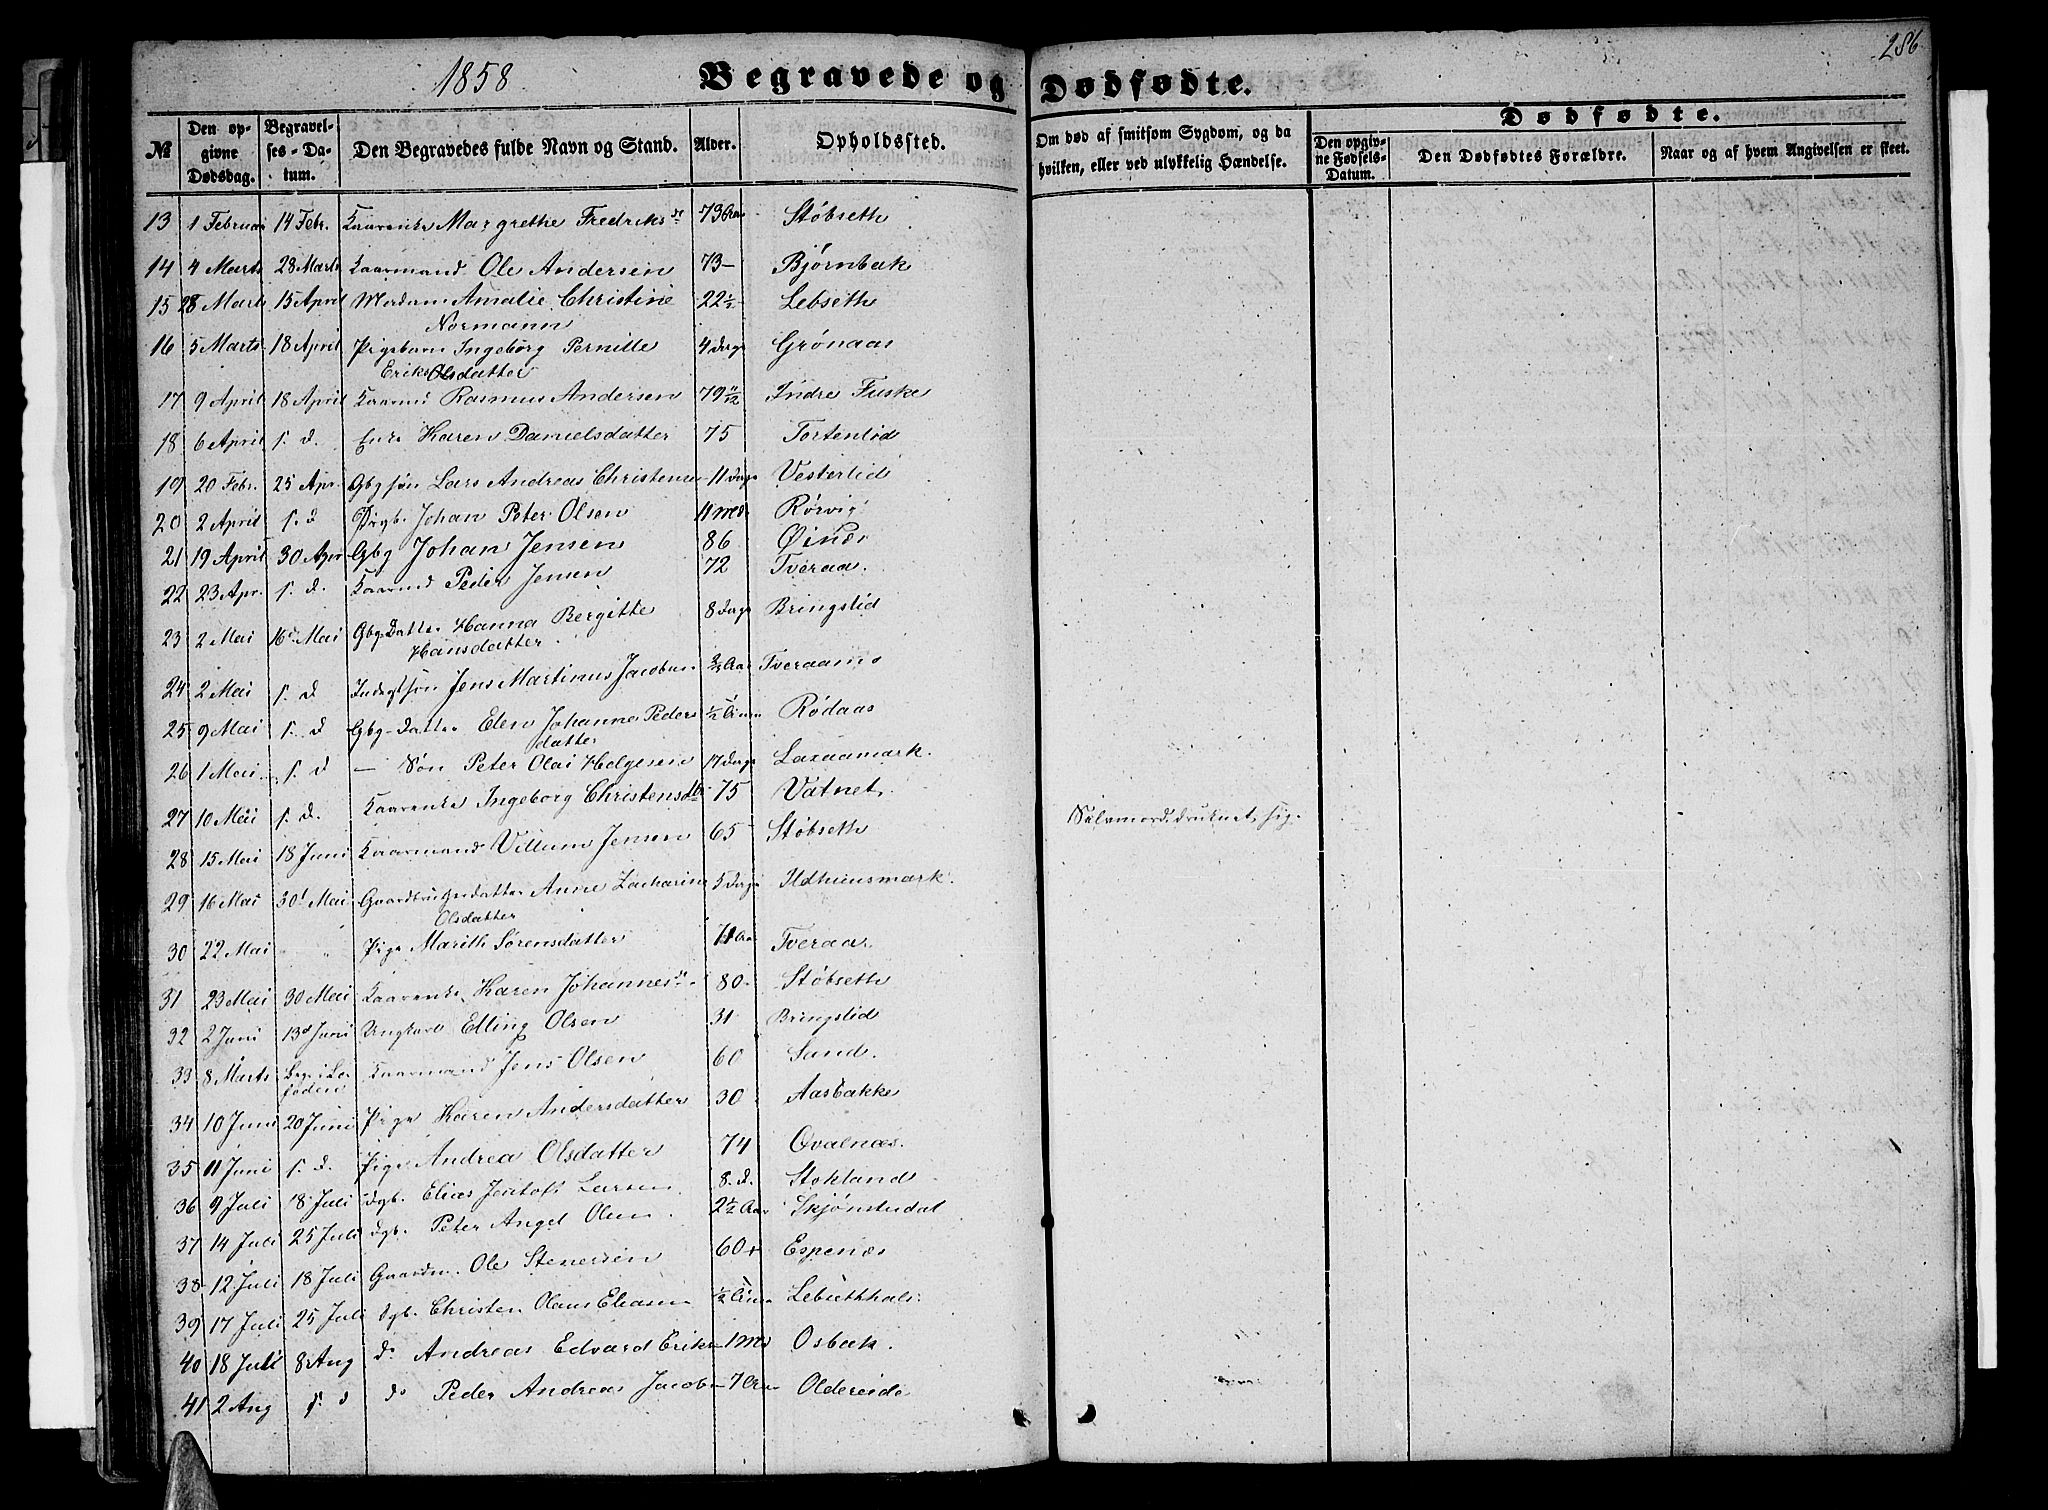 286
1858 Begravede og Dødfødte.
№
Den opgivne Dødsdag.
Begravelses-Datum.
Den Begravedes fulde Navn og Stand.
Alder.
Opholdssted.
Om død af smitsom Sygdom, og da hvilken, eller ved ulykkelig Hændelse.
Dødfødte.
Den opgivne Fødsels-Datum.
Den Dødfødtes Forældre.
Naar og af hvem Angivelsen er skeet.
13 1 Februar 14 Febr. Kaarenke Margrethe Fredriksd 73 Aar Støbseth
14 4 Marts 28 Marts Kaarmand Ole Andersen 73 – Bjørnbæk
15 28 Marts 15 April Madam Amalie Christine 22½ Lebseth
Normann
16 5 Marts 18 April Pigebarn Ingeborg Pernille 4 Dage Grønaas
Eriks Olsdatter
17 9 April 18 April Kaarmd Rasmus Andersen 79 11/12 Indre Fuske
18 6 April s. d. Enke Karen Danielsdatter 75 Tortenlid
19 20 Febr. 25 Apr. Gbg søn Lars Andreas Christensen 11 Dage Vesterlid
20 2 April s. d Drgb. Johan Peter Olsen 11 Md Rørvig
21 19 April 30 Apr Gbg Johan Jensen 86 Øines
22 23 Apr. s. d. Kaarmd Peder Jensen 72 Tveraa.
23 2 Mai 16 Mai Gbg Datter Hanna Bergitte 8 Dage Bringslid
Hansdatter
24 2 Mai s. d Inds søn Jens Martinus Jacobsen Aar Tveraamo
25 9 Mai s. d Gbg-Datter Elen Johanne Peders ½ Rødaas
datter
26 1 Mai s. d – Søn Peter Olai Helgesen 17 Dage Laxaamark.
27 10 Mai s. d. Kaarenke Ingeborg Christensd 75 Vatnet
28 15 Mai 18 Juni Kaarmand Villum Jensen 65 Støbseth Selvmord. druknet sig.
29 16 Mai 30 Mai Gaardbrugerdatter Anne Zacharine 5 Dage Ildhuusmark.
Olsdatter
30 22 Mai " Pige Marith Sørensdatter 71 Aar Tveraa
31 23 Mai 30 Mai Kaarenke Karen Johannesd 80 Støbseth
32 2 Juni 13 Juni Ungkarl Elling Olsen 31 Bringslid
33 8 Marts Begr. i Lofoden Kaarmand Jens Olsen 60 Sand.
34 10 Juni 20 Juni Pige Karen Andersdatter 30 Aasbakke
35 11 Juni s. d. Pige Andrea Olsdatter 74 Qvalnæs.
36 9 Juli 18 Juli Dgb. Elias Jentoft Larsen 8. D. Stokland
37 14 Juli 25 Juli Dgb. Peter Angel Olsen 2½ Aar Skjønstudal
38 12 Juli 18 Juli Gaardm. Ole Stenersen 60 Espenæs
39 17 Juli 25 Juli Dgb. Christen Olaus Eliasen ½ Lebsethhals
40 18 Juli 8 Aug do Andreas Edvard Eriks 1 Md Osbæk.
41 2 Aug s. d do Peder Andreas Jacobs 7 Aar Oldereide